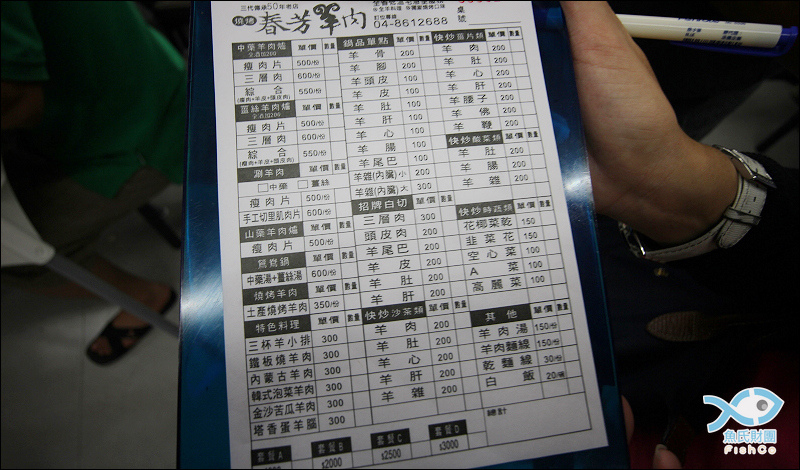 三代傳承50年老店
燒烤 春芳羊肉
※全羊料理 ※獨家燒烤口味
訂位專線
04-8612688
桌號
中藥羊肉爐 單價 數量
全酒加200
瘦肉片 500/份
三層肉 600/份
綜合 550/份
(瘦肉+羊皮+頭皮肉)
薑絲羊肉爐 單價 數量
全酒加200
瘦肉片 500/份
三層肉 600/份
綜合 550/份
(瘦肉+羊皮+頭皮肉)
涮羊肉 單價 數量
□中藥 □薑絲
瘦肉片 500/份
手工切里肌肉片 600/份
山藥羊肉爐 單價 數量
瘦肉片 500/份
鴛鴦鍋 單價 數量
中藥湯+薑絲湯 600/份
燒烤羊肉 單價 數量
土產燒烤羊肉 350/份
特色料理 單價 數量
三杯羊小排 300
鐵板燒羊肉 300
內蒙古羊肉 300
韓式泡菜羊肉 300
金沙苦瓜羊肉 300
塔香蛋羊腦 300
鍋品單點 單價 數量
羊骨 200
羊腳 200
羊頭皮 100
羊皮 100
羊肚 100
羊肝 100
羊心 100
羊腸 100
羊尾巴 100
羊雜(內臟)小 200
羊雜(內臟)大 300
招牌白切 單價 數量
三層肉 300
頭皮肉 200
羊尾巴 200
羊皮 200
羊肚 200
羊肝 200
快炒沙茶類 單價 數量
羊肉 200
羊肚 200
羊心 200
羊肝 200
羊雜 200
快炒薑片類 單價 數量
羊肉 200
羊肚 200
羊心 200
羊肝 200
羊腰子 200
羊佛 200
羊鞭 200
快炒酸菜類 單價 數量
羊肚 200
羊腸 200
羊雜 200
快炒時蔬類 單價 數量
花椰菜乾 150
韭菜花 150
空心菜 100
A菜 100
高麗菜 100
其他 單價 數量
羊肉湯 150/份
羊肉麵線 150/份
乾麵線 30/份
白飯 20/碗
總計
套餐A 套餐B $2000
套餐C $2500
套餐D $3000
魚氏財團
FishCo